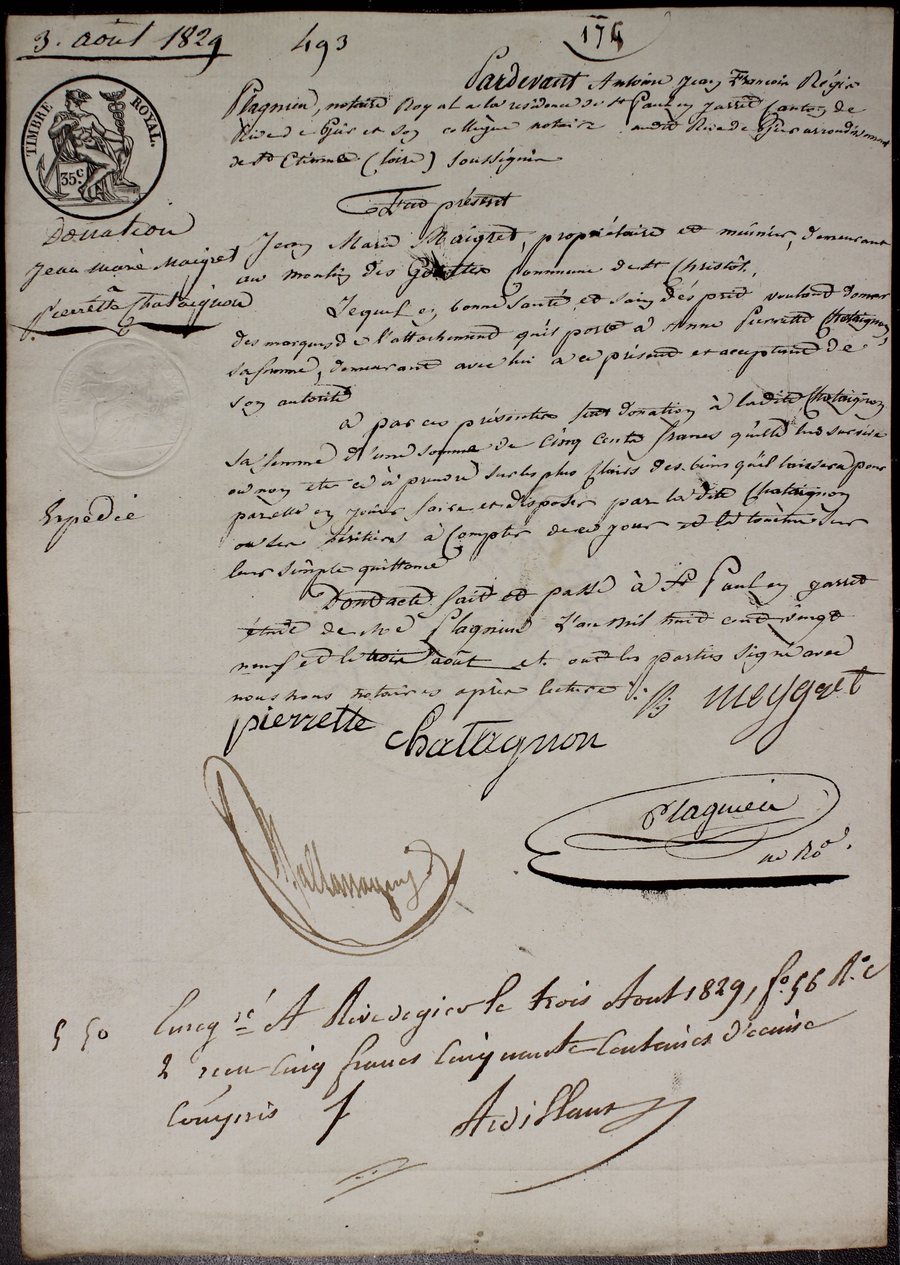 3. août 1829 493 174
TIMBRE ROYAL
35 c.
Pardevant Antoine Jean François Régis
Plagnieu, notaire Royal a la résidence de St Paul en jarret Canton de
Rive de Gier et son collègue notaire audit Rive de Gier arrondissement
de St Etienne (Loire) soussignés
Fut présent
Donation
Jean Marie Maigret
à
Pierrette Chataignon
Jean Marie Maigret, propriétaire et meunier, demeurant
au moulin des commune de St Christôt,
Lequel en bonne santé et sain d'esprit voulant donner
des marques de l'attachement qu'il porte à Pierrette Chataignon,
sa femme, demeurant avec lui a ce présent et acceptant de
son autorité
a par ces présentes fait donation à ladite Chataignon
sa femme d'une somme de cinq cents francs qu'elle lui survive
ou non et à prendre sur les plus clairs des biens qu'il laissera pour
par elle en jouir faire et disposer par ladite Chataignon
ou ses héritiers à compter de ce jour et la toucher sur
leur simple quittance
Expédié
Dont acte fait et passé à St Paul en jarret
étude de Me Plagnieu L'an mil huit cent vingt
neuf et le trois août et ont les parties signé avec
nous notaires après lecture
pierrette chatagnon meygret
Plagnieu
no Ro.
5 50 Enregré A Rivedegier le trois Aout 1829, fo. 56 Ro. c
2 reçu Cinq francs Cinquante Centimes décime
Compris